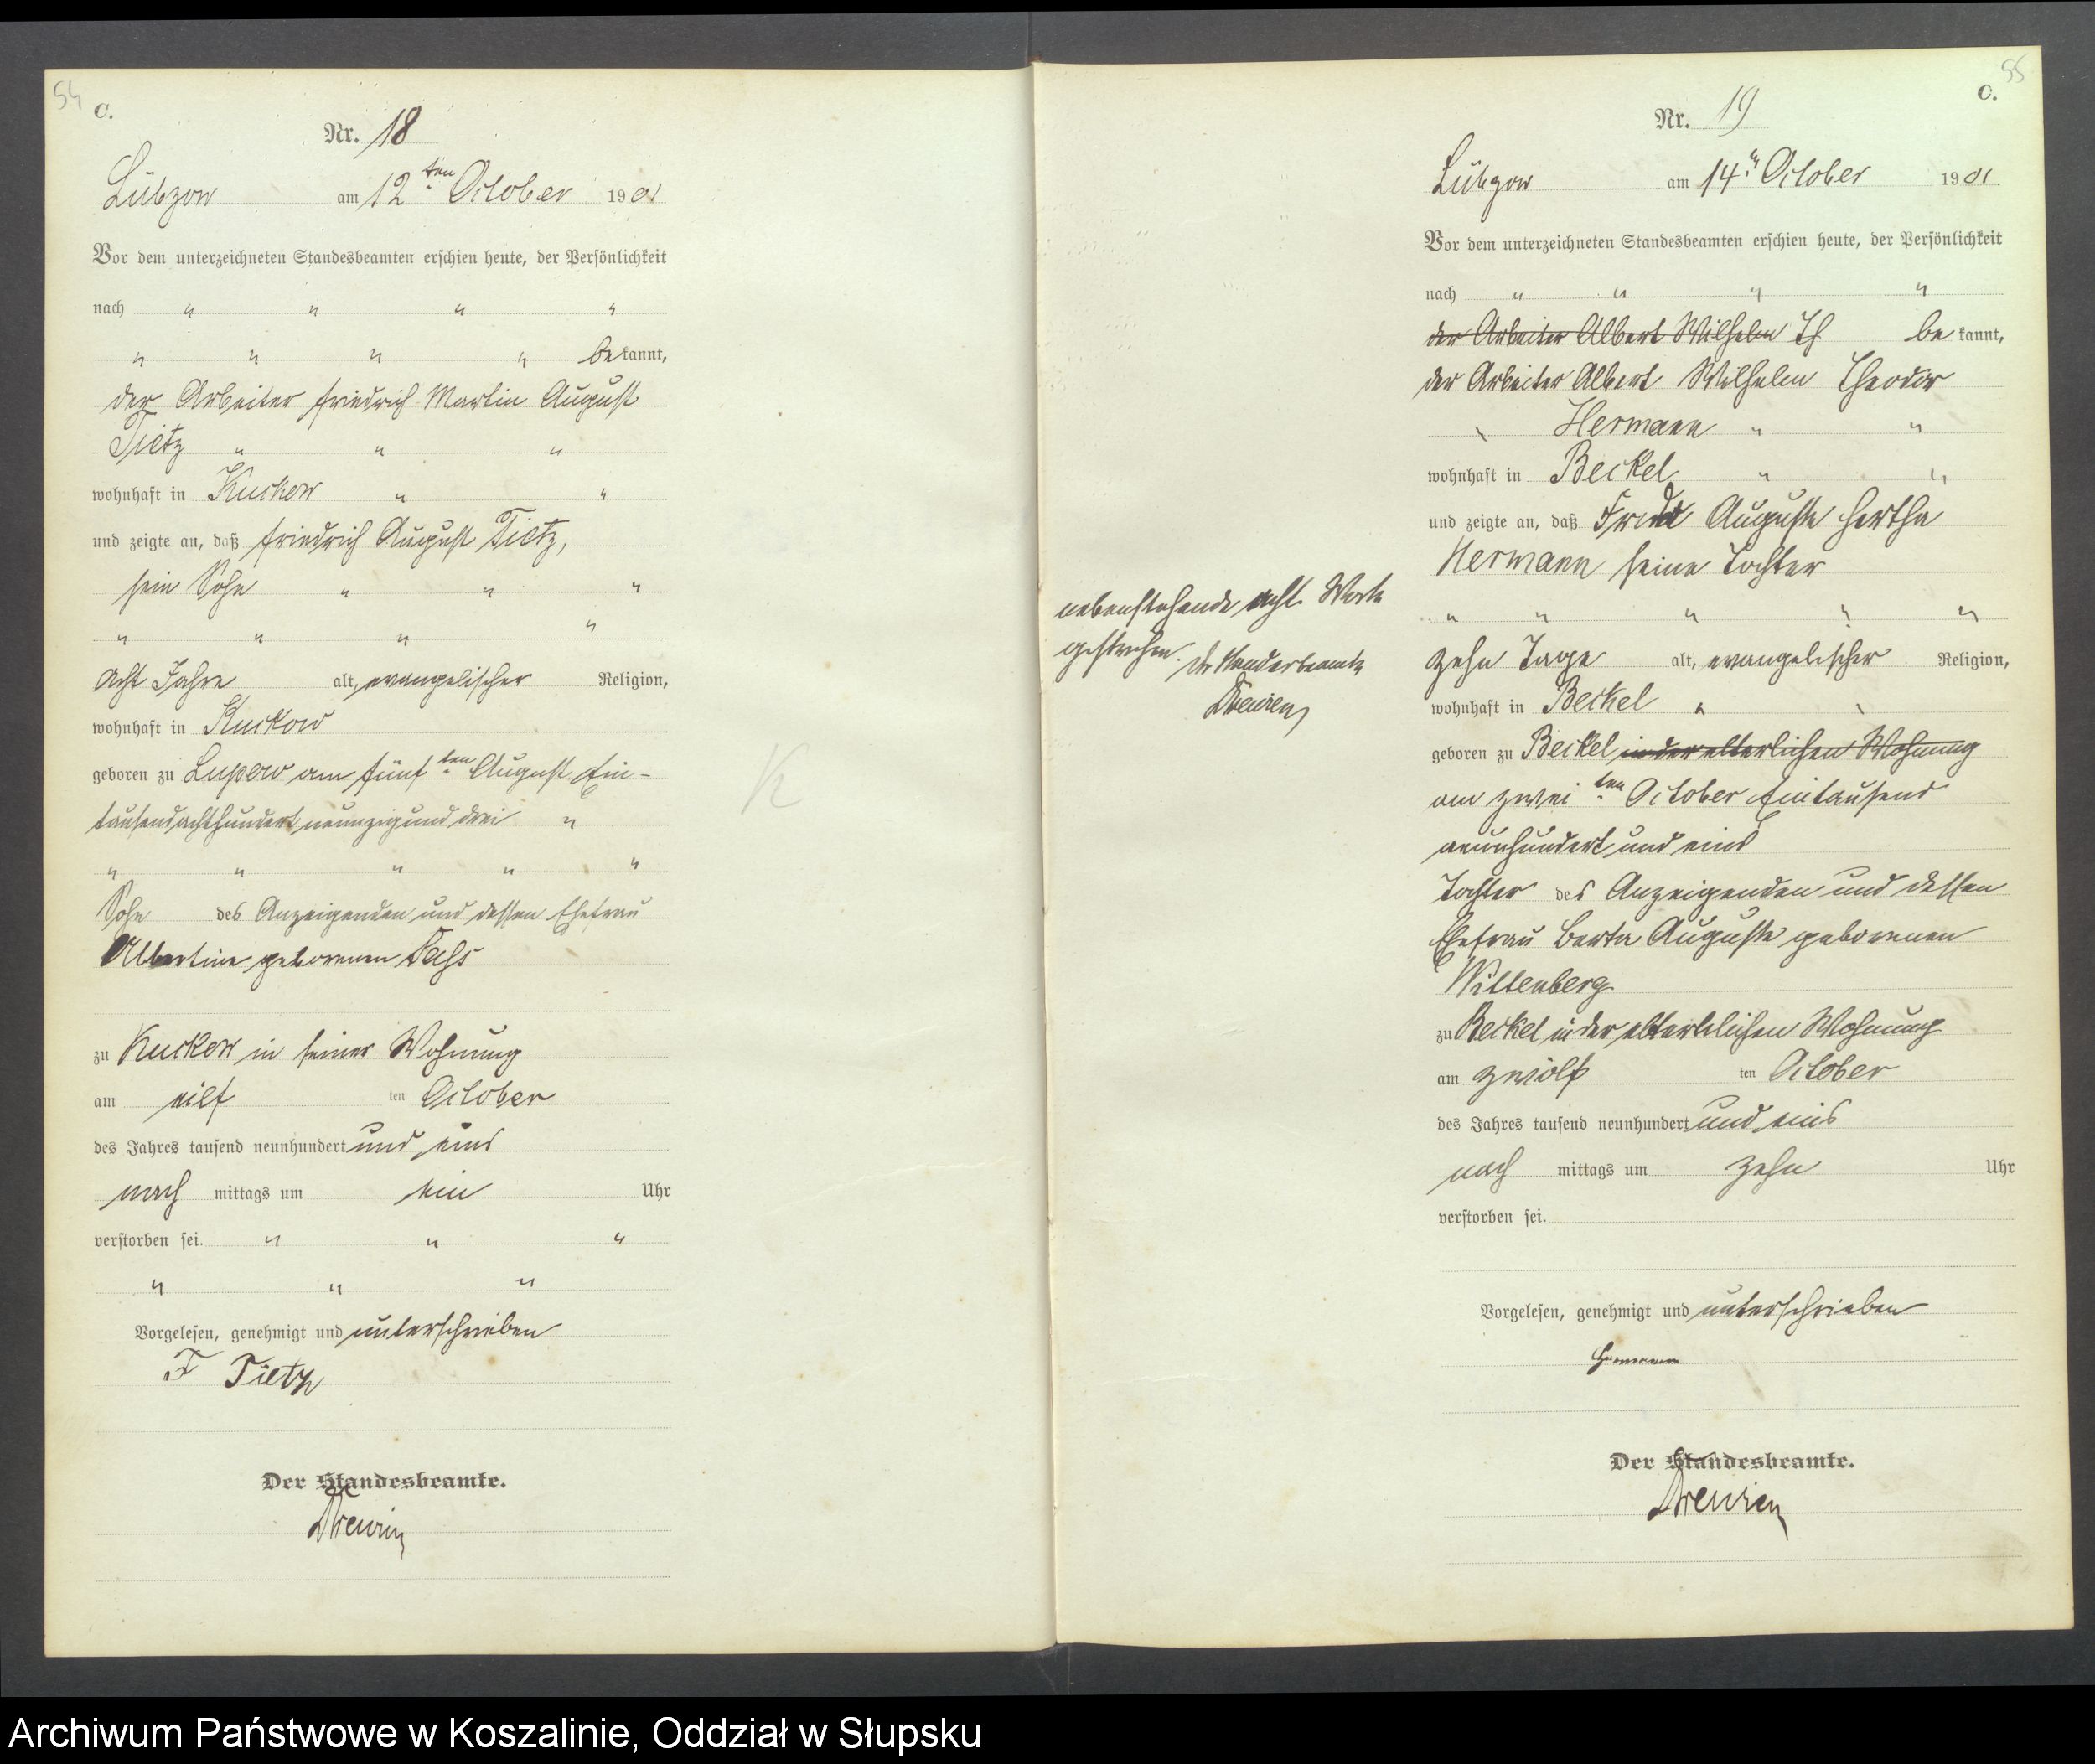 54
C.
Nr. 18
Lübzow am 12ten October 1901
Vor dem unterzeichneten Standesbeamten erschien heute, der Persönlichkeit
nach " " " "
" " " " be kannt,
der Arbeiter Friedrich Martin August
Tietz " " "
wohnhaft in Kuskow " "
und zeigte an, daß Friedrich August Tietz,
sein Sohn " " "
" " " "
acht Jahre alt, evangelischer Religion,
wohnhaft in Kuskow
geboren zu Lupow am fünf ten August Ein-
tausendachthundert neunzigund drei "
" " " " "
Sohn des Anzeigenden und dessen Ehefrau
Albertine geborenen
zu Kuskow in seiner Wohnung
am eilf ten October
des Jahres tausend neunhundert und eins
nach mittags um ein Uhr
verstorben sei. " " "
" " "
Vorgelesen, genehmigt und unterschrieben
F Tietz
Der Standesbeamte.
Drewin
K
55
C.
Nr. 19
Lübzow am 14n October 1901
Vor dem unterzeichneten Standesbeamten erschien heute, der Persönlichkeit
nach " " " "
der Arbeiter Albert Wilhelm Th be kannt,
der Arbeiter Albert Wilhelm Theodor
" Hermann " "
wohnhaft in Beckel " "
und zeigte an, daß Frida Auguste Hertha
Hermann seine Tochter
" " " " "
zehn Tage alt, evangelischer Religion,
wohnhaft in Beckel " "
geboren zu Beckel in der elterlichen Wohnung
am zwei ten October Eintausend
neunhundert und eins
Tochter des Anzeigenden und dessen
Ehefrau Berta Auguste geborenen
Wittenberg
zu Beckel in der elterlichen Wohnung
am zwölf ten October
des Jahres tausend neunhundert und eins
nach mittags um zehn Uhr
verstorben sei.
Vorgelesen, genehmigt und unterschrieben
Hermann
Der Standesbeamte.
Drewien
nebenstehende acht Worte
gestrichen. Der Standesbeamte
Drewien
Archiwum Państwowe w Koszalinie, Oddział w Słupsku